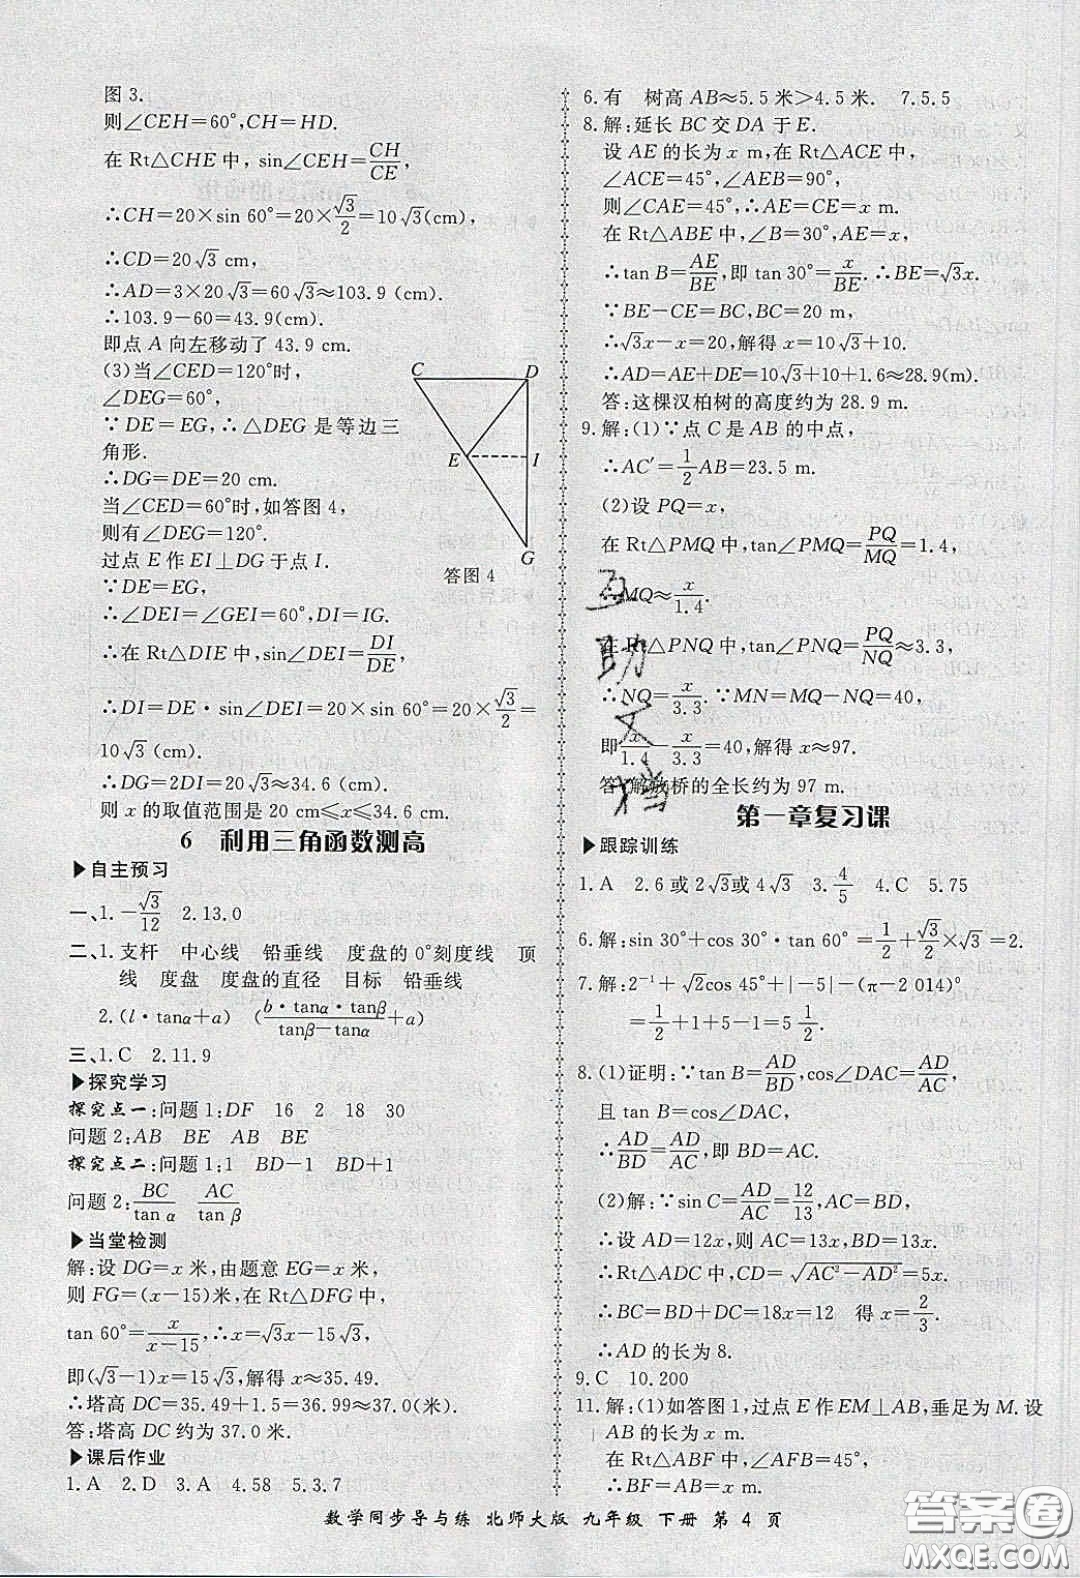 图 3.
则∠CEH=60°,CH=HD.
在 Rt△CHE 中, sin∠CEH=CH/CE,
∴CH=20×sin 60°=20×√3/2=10√3(cm),
∴CD=20√3 cm,
∴AD=3×20√3=60√3≈103.9 (cm).
∴103.9-60=43.9(cm).
即点 A 向左移动了 43.9 cm.
(3)当∠CED=120°时,
∠DEG=60°,
∵DE=EG,∴△DEG 是等边三
角形.
∴DG=DE=20 cm.
当∠CED=60°时,如答图 4,
则有∠DEG=120°.
过点 E 作 EI⊥DG 于点 I.
∵DE=EG,
∴∠DEI=∠GEI=60°,DI=IG.
∴在 Rt△DIE 中, sin∠DEI=DI/DE,
∴DI=DE·sin∠DEI=20×sin 60°=20×√3/2=
10√3 (cm).
∴DG=2DI=20√3≈34.6 (cm).
则 x 的取值范围是 20 cm≤x≤34.6 cm.
C D
E I
G
答图 4
6 利用三角函数测高
▶自主预习
一、1.-√3/12 2.13.0
二、1.支杆 中心线 铅垂线 度盘的 0°刻度线 顶
线 度盘 度盘的直径 目标 铅垂线
2.(l·tanα+a) (b·tanα·tanβ/tanβ-tanα+a)
三、1.C 2.11.9
▶探究学习
探究点一:问题 1:DF 16 2 18 30
问题 2:AB BE AB BE
探究点二:问题 1:1 BD-1 BD+1
问题 2:BC/tan α AC/tan β
▶当堂检测
解:设 DG=x 米,由题意 EG=x 米,
则 FG=(x-15)米,在 Rt△DFG 中,
tan 60°=x/x-15,∴x=√3x-15√3,
即(√3-1)x=15√3,解得 x≈35.49.
∴塔高 DC=35.49+1.5=36.99≈37.0(米).
答:塔高 DC 约为 37.0 米.
▶课后作业
1.A 2.D 3.A 4.58 5.3.7
6.有 树高 AB≈5.5 米>4.5 米. 7.5.5
8.解:延长 BC 交 DA 于 E.
设 AE 的长为 x m,在 Rt△ACE 中,
∠ACE=45°,∠AEB=90°,
则∠CAE=45°,∴AE=CE=x m.
在 Rt△ABE 中,∠B=30°,AE=x,
∴tan B=AE/BE,即 tan 30°=x/BE.∴BE=√3x.
∵BE-CE=BC,BC=20 m,
∴√3x-x=20,解得 x=10√3+10.
∴AD=AE+DE=10√3+10+1.6≈28.9(m).
答:这棵汉柏树的高度约为 28.9 m.
9.解:(1)∵点 C 是 AB 的中点,
∴AC′=1/2AB=23.5 m.
(2)设 PQ=x,
在 Rt△PMQ 中,tan∠PMQ=PQ/MQ=1.4,
∴MQ≈x/1.4.
在 Rt△PNQ 中,tan∠PNQ=PQ/NQ≈3.3,
∴NQ=x/3.3.∵MN=MQ-NQ=40,
即x/1.4-x/3.3=40,解得 x≈97.
答:解放桥的全长约为 97 m.
第一章复习课
▶跟踪训练
1.A 2.6 或 2√3或 4√3 3.4/5 4.C 5.75
6.解:sin 30°+cos 30°·tan 60°=1/2+√3/2×√3=2.
7.解:2⁻¹+√2cos 45°+|-5|-(π-2 014)°
=1/2+1+5-1=5 1/2.
8.(1)证明:∵tan B=AD/BD,cos∠DAC=AD/AC,
且 tan B=cos∠DAC,
∴AD/BD=AD/AC,即 BD=AC.
(2)解:∵sin C=AD/AC=12/13,AC=BD,
∴设 AD=12x,则 AC=13x,BD=13x.
∴Rt△ADC 中,CD=√AC²-AD²=5x.
∴BC=BD+DC=18x=12 得 x=2/3.
∴AD 的长为 8.
9.C 10.200
11.解:(1)如答图 1,过点 E 作 EM⊥AB,垂足为 M.设
AB 为 x m.
在 Rt△ABF 中,∠AFB=45°,
∴BF=AB=x m.
数学同步导与练 北师大版 九年级 下册 第 4 页
互助文档
答案圈
MXQE.COM